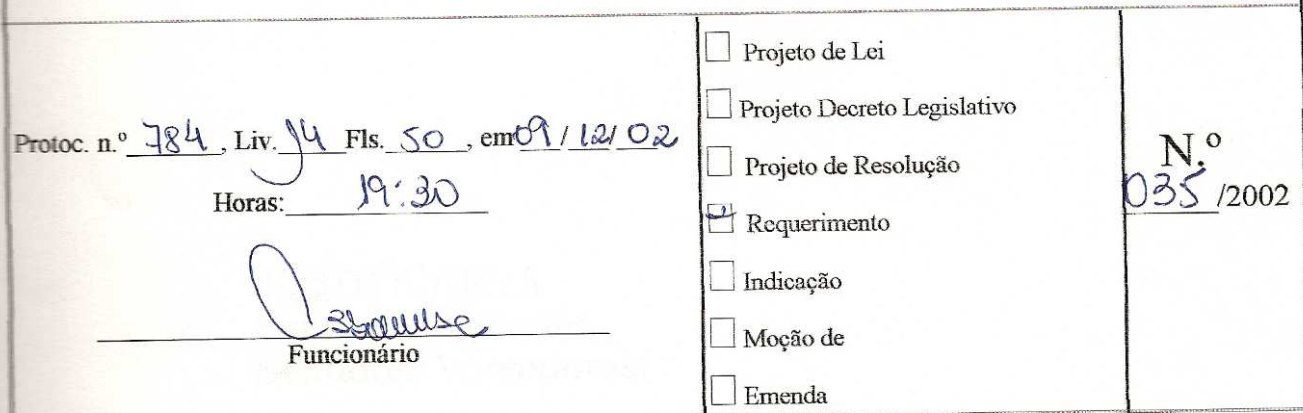 Protoc. n.º 784, Liv. 14 Fls. 50, em 09/12/02
Horas: 19:30
Funcionário
Projeto de Lei
Projeto Decreto Legislativo
Projeto de Resolução
Requerimento
Indicação
Moção de
Emenda
N.º
035/2002